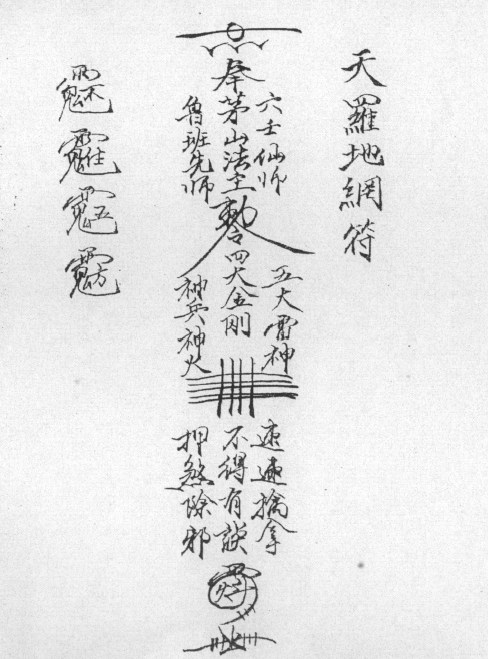 天羅地網符
六壬仙师
奉茅山法主敕令四大金刚
鲁班先师
五大雷神
神兵神火
速速擒拿
不得有误
押煞除邪